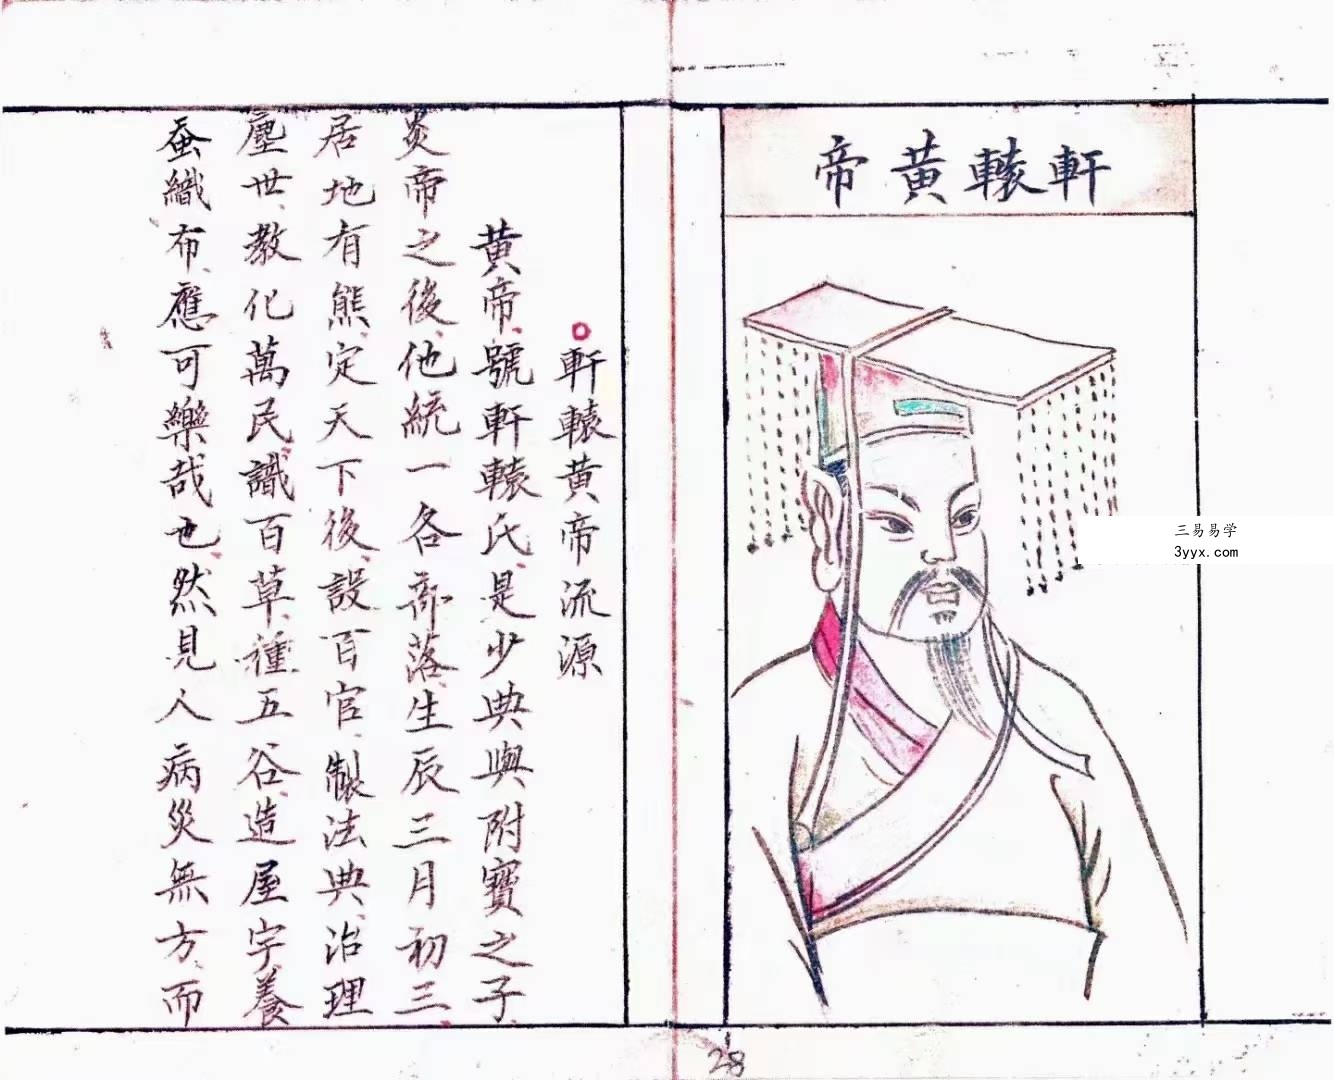 軒轅黃帝
軒轅黃帝流源
黃帝、號軒轅氏、是少典與附寶之子、
炎帝之後、他統一各部落、生辰三月初三、
居地有熊、定天下後、設百官、製法典、治理
塵世、教化萬民、識百草、種五谷、造屋宇、養
蚕織布、應可樂哉也、然見人病災無方、而
三易易学
3yyx.com
28